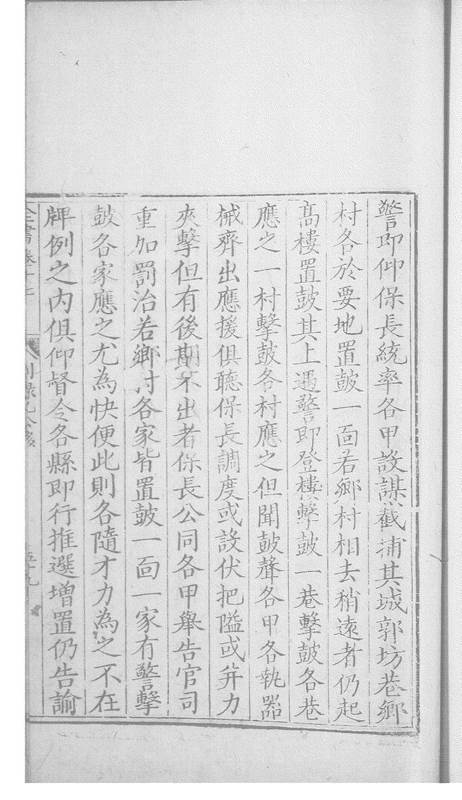 警即仰保長統率各甲設謀截捕其城郭坊巷鄉
村各於要地置鼓一面若鄉村相去稍遠者仍起
高樓置鼓其上遇警即登樓擊鼓一巷擊鼓各巷
應之一村擊鼓各村應之但聞鼓聲各甲各執器
械齊出應援俱聽保長調度或設伏把隘或并力
夾擊但有後期不出者保長公同各甲舉告官司
重加罰治若鄉村各家皆置鼓一面一家有警擊
鼓各家應之尤為快便此則各隨才力為之不在
牌例之內俱仰督令各縣即行推選增置仍告諭
全書卷十七 別錄九公移